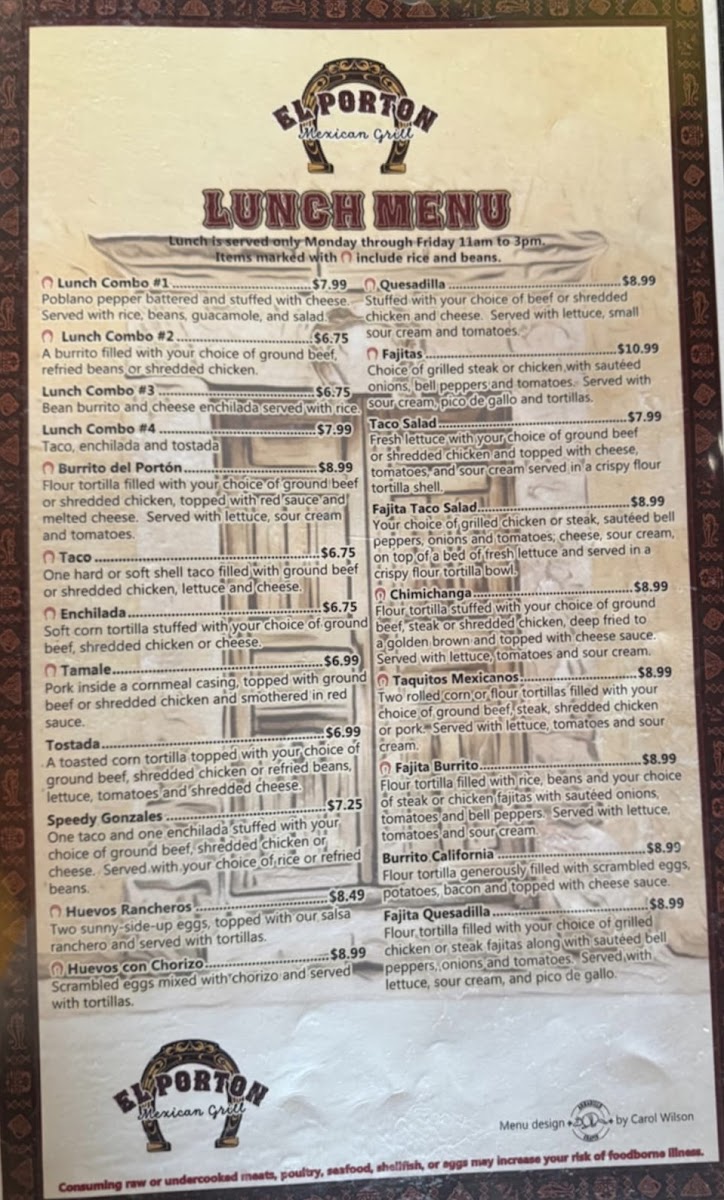 EL PORTON
Mexican Grill
LUNCH MENU
Lunch is served only Monday through Friday 11am to 3pm.
Items marked with include rice and beans.
Lunch Combo #1 $7.99
Poblano pepper battered and stuffed with cheese.
Served with rice, beans, guacamole, and salad.
Lunch Combo #2 $6.75
A burrito filled with your choice of ground beef,
refried beans or shredded chicken.
Lunch Combo #3 $6.75
Bean burrito and cheese enchilada served with rice.
Lunch Combo #4 $7.99
Taco, enchilada and tostada
Burrito del Portón $8.99
Flour tortilla filled with your choice of ground beef
or shredded chicken, topped with red sauce and
melted cheese. Served with lettuce, sour cream
and tomatoes.
Taco $6.75
One hard or soft shell taco filled with ground beef
or shredded chicken, lettuce and cheese.
Enchilada $6.75
Soft corn tortilla stuffed with your choice of ground
beef, shredded chicken or cheese.
Tamale $6.99
Pork inside a cornmeal casing, topped with ground
beef or shredded chicken and smothered in red
sauce.
Tostada $6.99
A toasted corn tortilla topped with your choice of
ground beef, shredded chicken or refried beans,
lettuce, tomatoes and shredded cheese.
Speedy Gonzales $7.25
One taco and one enchilada stuffed with your
choice of ground beef, shredded chicken or
cheese. Served with your choice of rice or refried
beans.
Huevos Rancheros $8.49
Two sunny-side-up eggs, topped with our salsa
ranchero and served with tortillas.
Huevos con Chorizo $8.99
Scrambled eggs mixed with chorizo and served
with tortillas.
Quesadilla $8.99
Stuffed with your choice of beef or shredded
chicken and cheese. Served with lettuce, small
sour cream and tomatoes.
Fajitas $10.99
Choice of grilled steak or chicken with sautéed
onions, bell peppers and tomatoes. Served with
sour cream, pico de gallo and tortillas.
Taco Salad $7.99
Fresh lettuce with your choice of ground beef
or shredded chicken and topped with cheese,
tomatoes, and sour cream served in a crispy flour
tortilla shell.
Fajita Taco Salad $8.99
Your choice of grilled chicken or steak, sautéed bell
peppers, onions and tomatoes; cheese, sour cream,
on top of a bed of fresh lettuce and served in a
crispy flour tortilla bowl.
Chimichanga $8.99
Flour tortilla stuffed with your choice of ground
beef, steak or shredded chicken, deep fried to
a golden brown and topped with cheese sauce.
Served with lettuce, tomatoes and sour cream.
Taquitos Mexicanos $8.99
Two rolled corn or flour tortillas filled with your
choice of ground beef, steak, shredded chicken
or pork. Served with lettuce, tomatoes and sour
cream.
Fajita Burrito $8.99
Flour tortilla filled with rice, beans and your choice
of steak or chicken fajitas with sautéed onions,
tomatoes and bell peppers. Served with lettuce,
tomatoes and sour cream.
Burrito California $8.99
Flour tortilla generously filled with scrambled eggs,
potatoes, bacon and topped with cheese sauce.
Fajita Quesadilla $8.99
Flour tortilla filled with your choice of grilled
chicken or steak fajitas along with sautéed bell
peppers, onions and tomatoes. Served with
lettuce, sour cream, and pico de gallo.
EL PORTON
Mexican Grill
Menu design by Carol Wilson
Consuming raw or undercooked meats, poultry, seafood, shellfish, or eggs may increase your risk of foodborne illness.